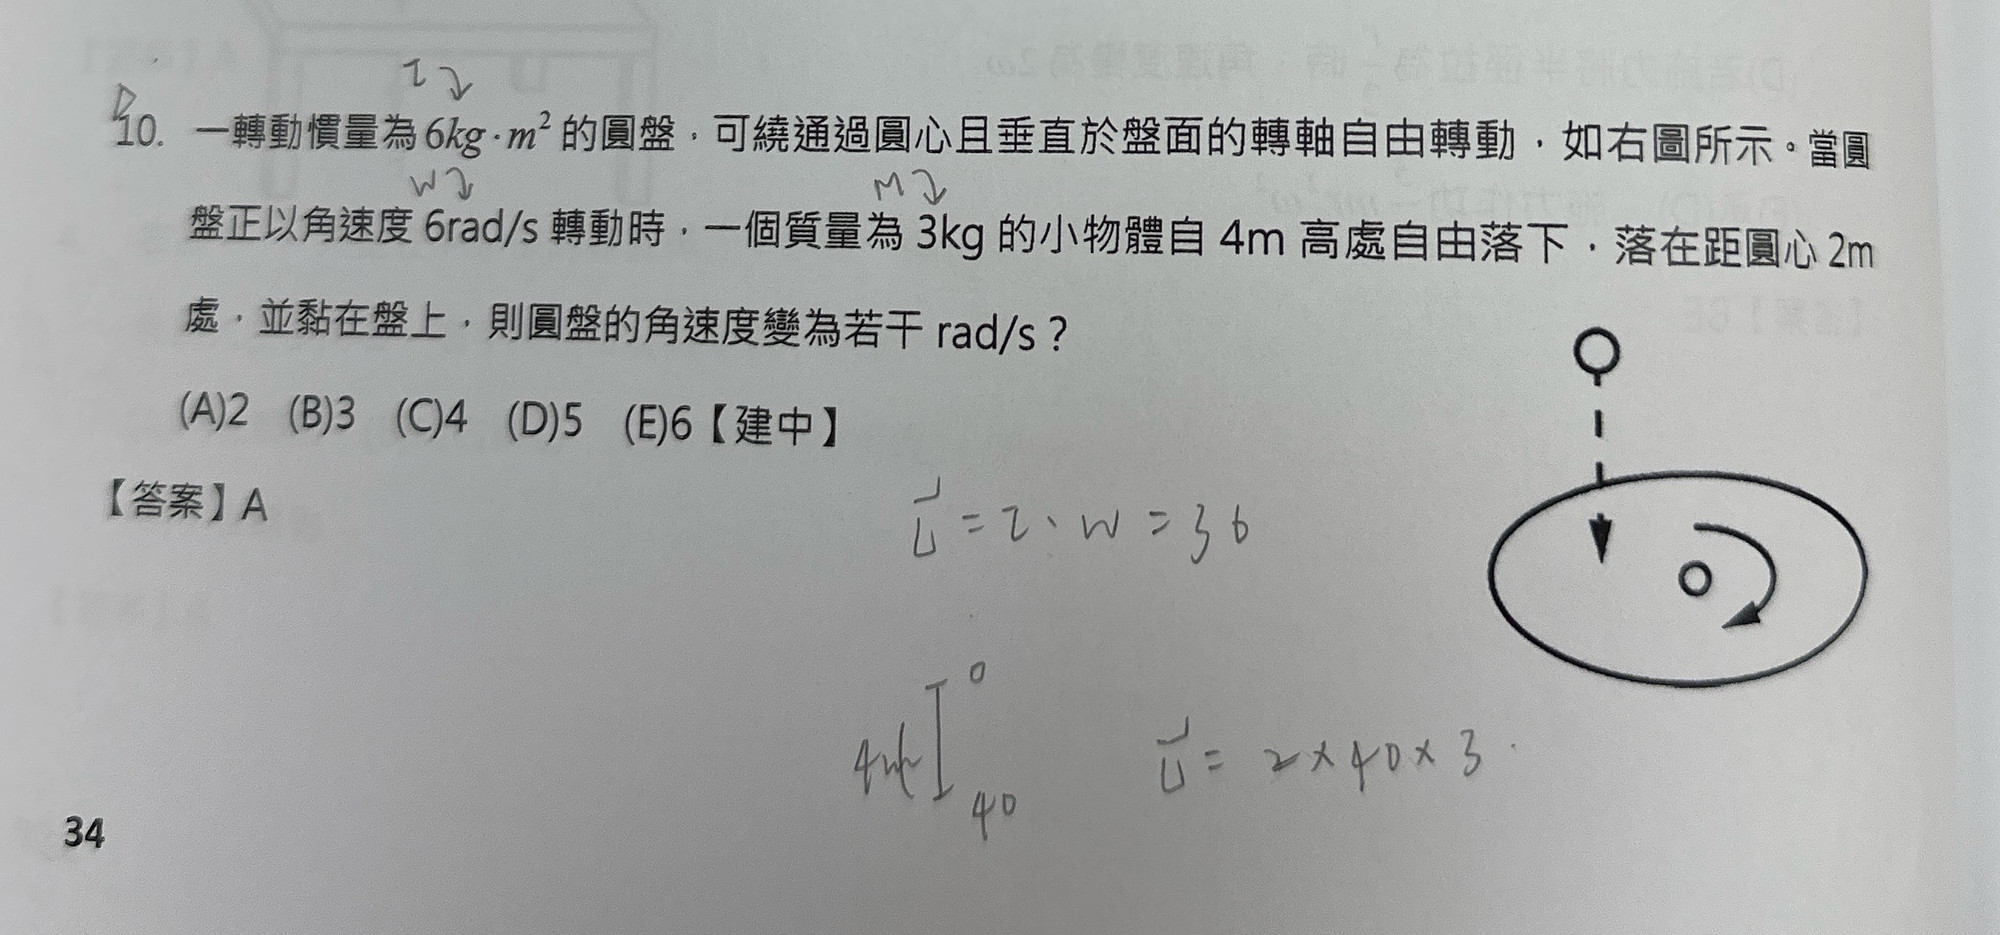 I
10. 一轉動慣量為 6kg·m² 的圓盤，可繞通過圓心且垂直於盤面的轉軸自由轉動，如右圖所示。當圓
W M
盤正以角速度 6rad/s 轉動時，一個質量為 3kg 的小物體自 4m 高處自由落下，落在距圓心 2m
處，並黏在盤上，則圓盤的角速度變為若干 rad/s？
(A)2 (B)3 (C)4 (D)5 (E)6【建中】
【答案】A
L = I · W = 36
0
40
L = 2×40×3
34